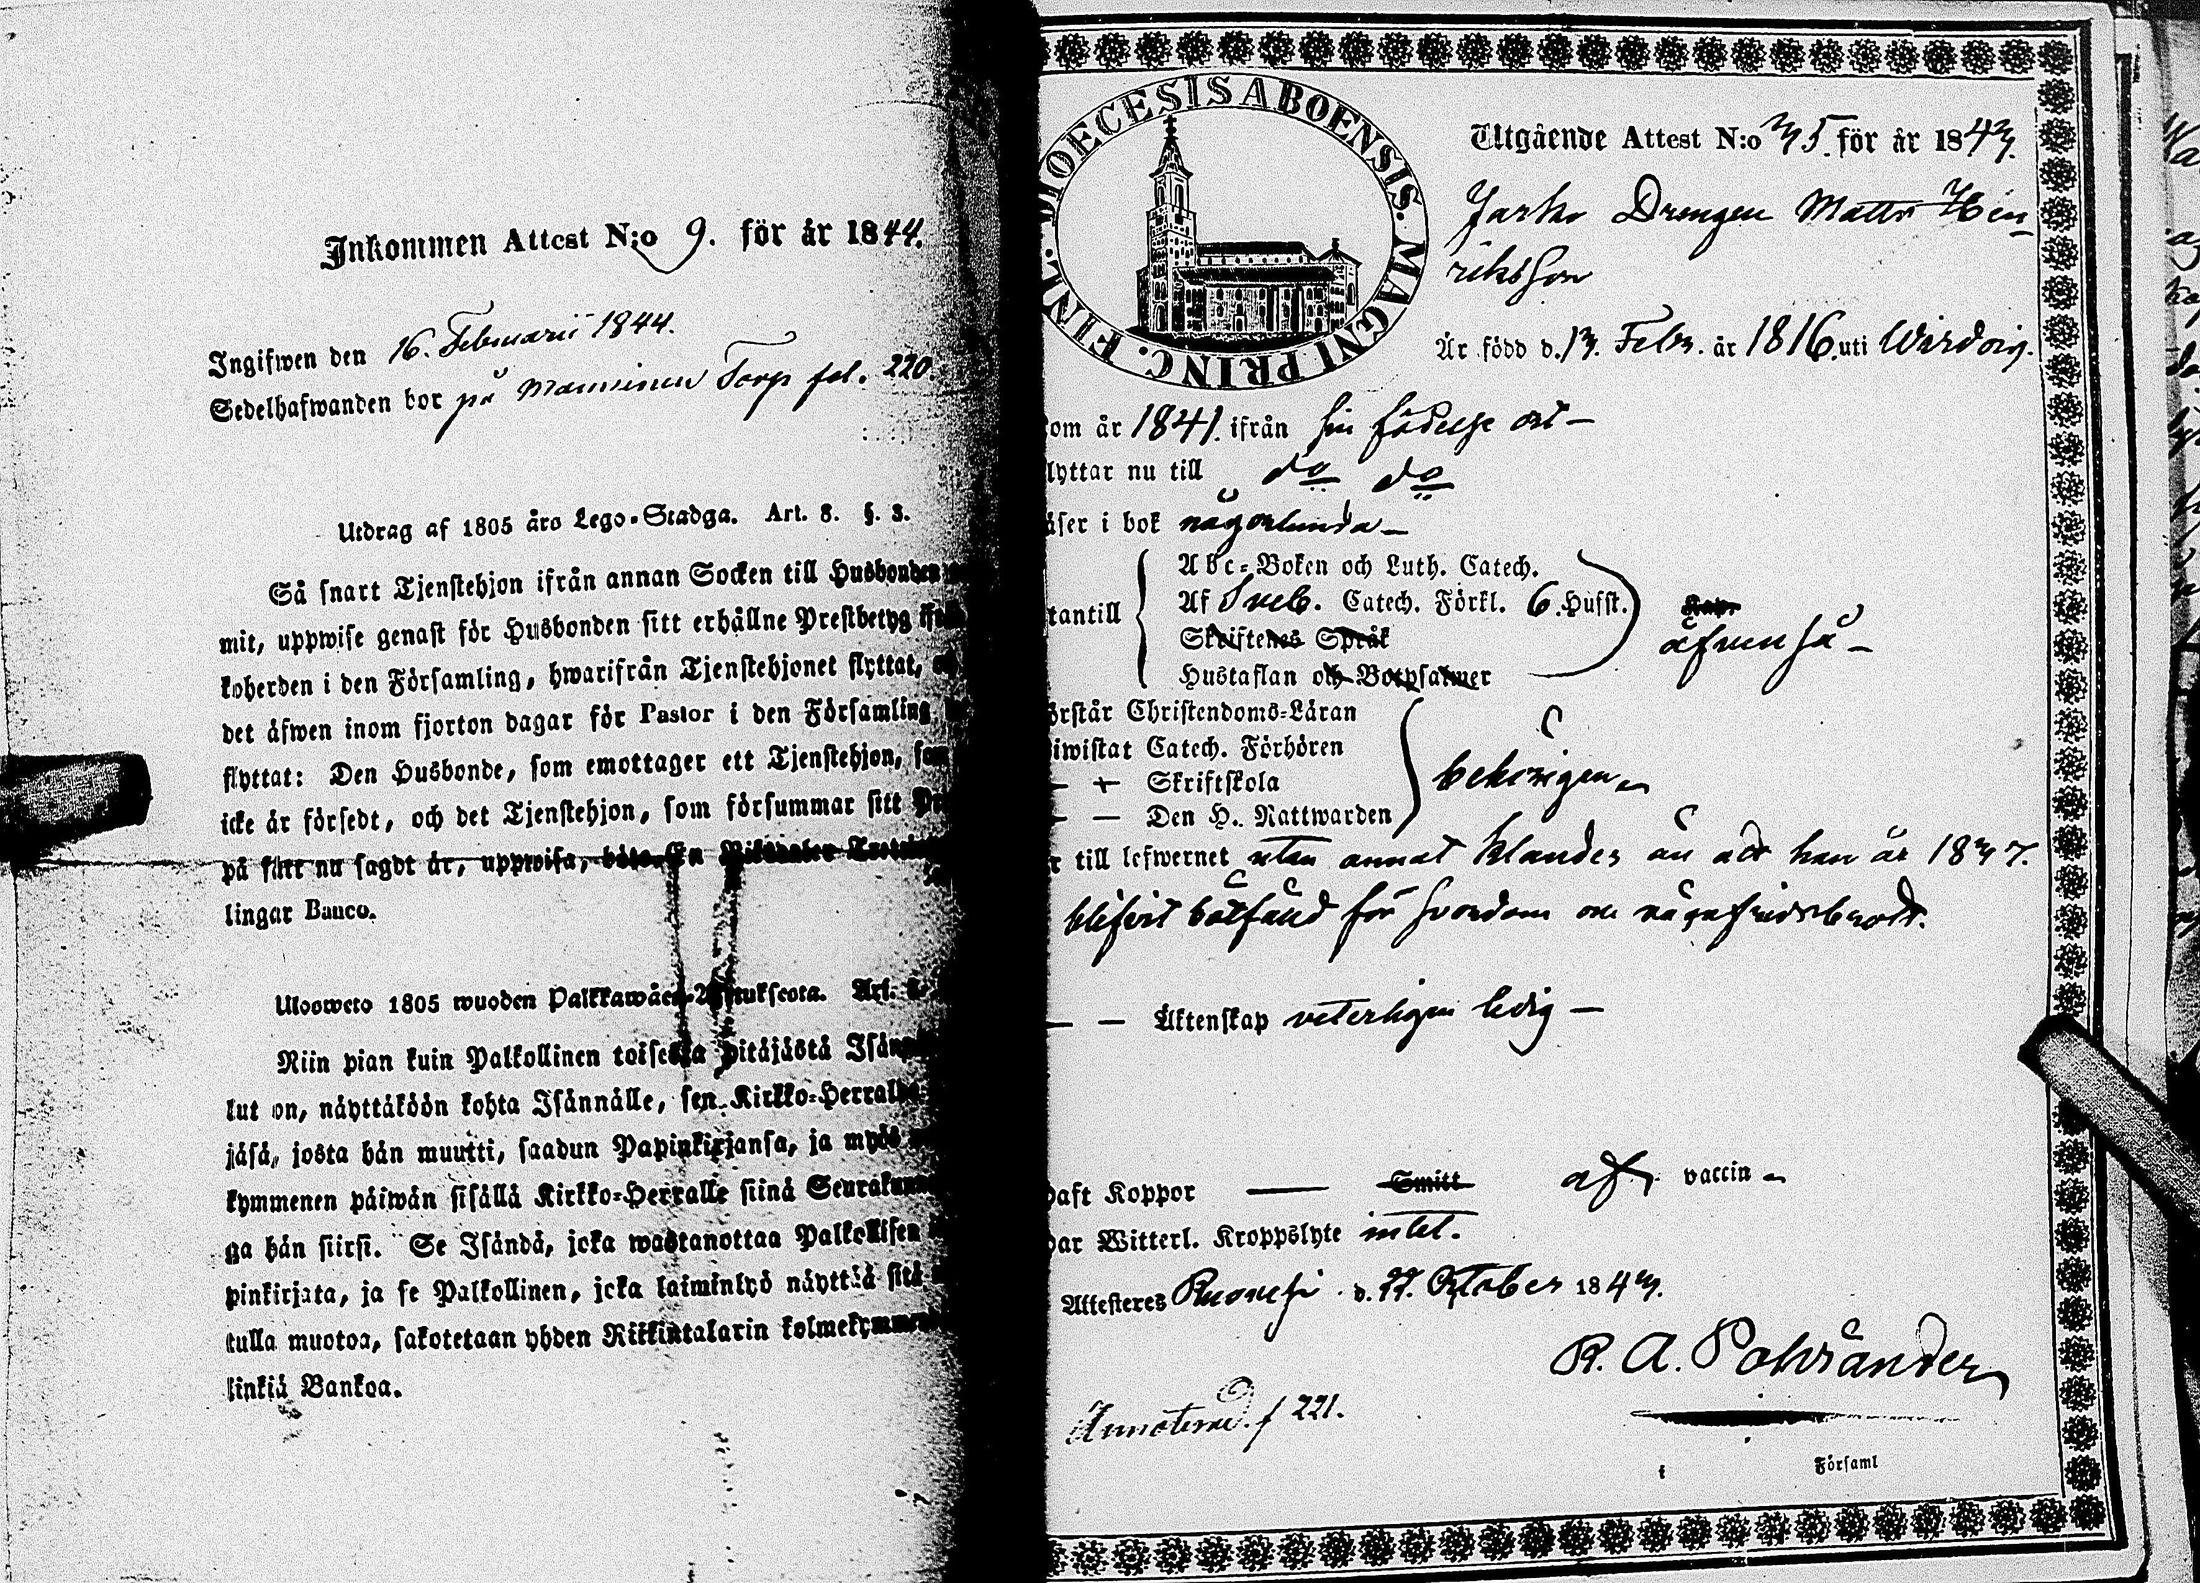 Inkommen Attest N:o 9. för år 1844.
Ingifwen den 16. Februarii 1844.
Sedelhafwanden bor på Manninen Torp fol. 220.
Utdrag af 1805 års Lego-Stadga. Art. 8. §. 3.
Så snart Tjenstehjon ifrån annan Socken till Husbonden
mit, uppwise genast för Husbonden sitt erhållne Prestbetyg
koherden i den Församling, hwarifrån Tjenstehjonet flyttat,
det äfwen inom fjorton dagar för Pastor i den Församling
flyttat: Den Husbonde, som emottager ett Tjenstehjon, som
icke är försedt, och det Tjenstehjon, som försummar sitt
på sätt nu sagdt är, uppwisa, böte En Riksdaler
lingar Banco.
Ulosweto 1805 wuoden Palkkawäen- Art.
Niin pian kuin Palkollinen toisesta pitäjästä
lut on, näyttäköön kohta Isännälle, sen Kirkko-Herralta
jäsä, josta hän muutti, saadun Papinkirjansa, ja myös
kymmenen päiwän sisällä Kirkko-Herralle siinä
ga hän siirsi. Se Isändä, joka wastanottaa Palkollisen
pinkirjata, ja se Palkollinen, joka laiminlyö näyttää sitä
tulla muotoa, sakotetaan yhden Riikintalarin
linkiä Bankoa.
DIOECESIS ABOENSIS. MAGNI PRINC. FINL.
Utgående Attest N:o 35. för år 1843.
Drengen Matts Hen
riksson
Är född d. 13. Febr. år 1816. uti Wirdois.
om år 1841. ifrån sin födelse ort –
lyttar nu till do do
äser i bok någorlunda –
Abc-Boken och Luth. Catech.
Af Sveb. Catech. Förkl. 6. Hufst.
tantill
Skriftenes Språk
äfven så –
Hustaflan och Botpsalmer
örstår Christendoms-Läran
iwistat Catech. Förhören
– + Skriftskola
behörigen
– – Den H. Nattwarden
r till lefwernet utan annat klander än att han år 1837.
blifvit bötfäld för svordom
– – Äktenskap veterligen ledig –
haft Koppor — Smitt af vaccin
har Witterl. Kroppslyte intet.
Attesteres Ruovesi d. 22. October 1843.
R. A. Polviander
Annoterad. f 221.
i Församl